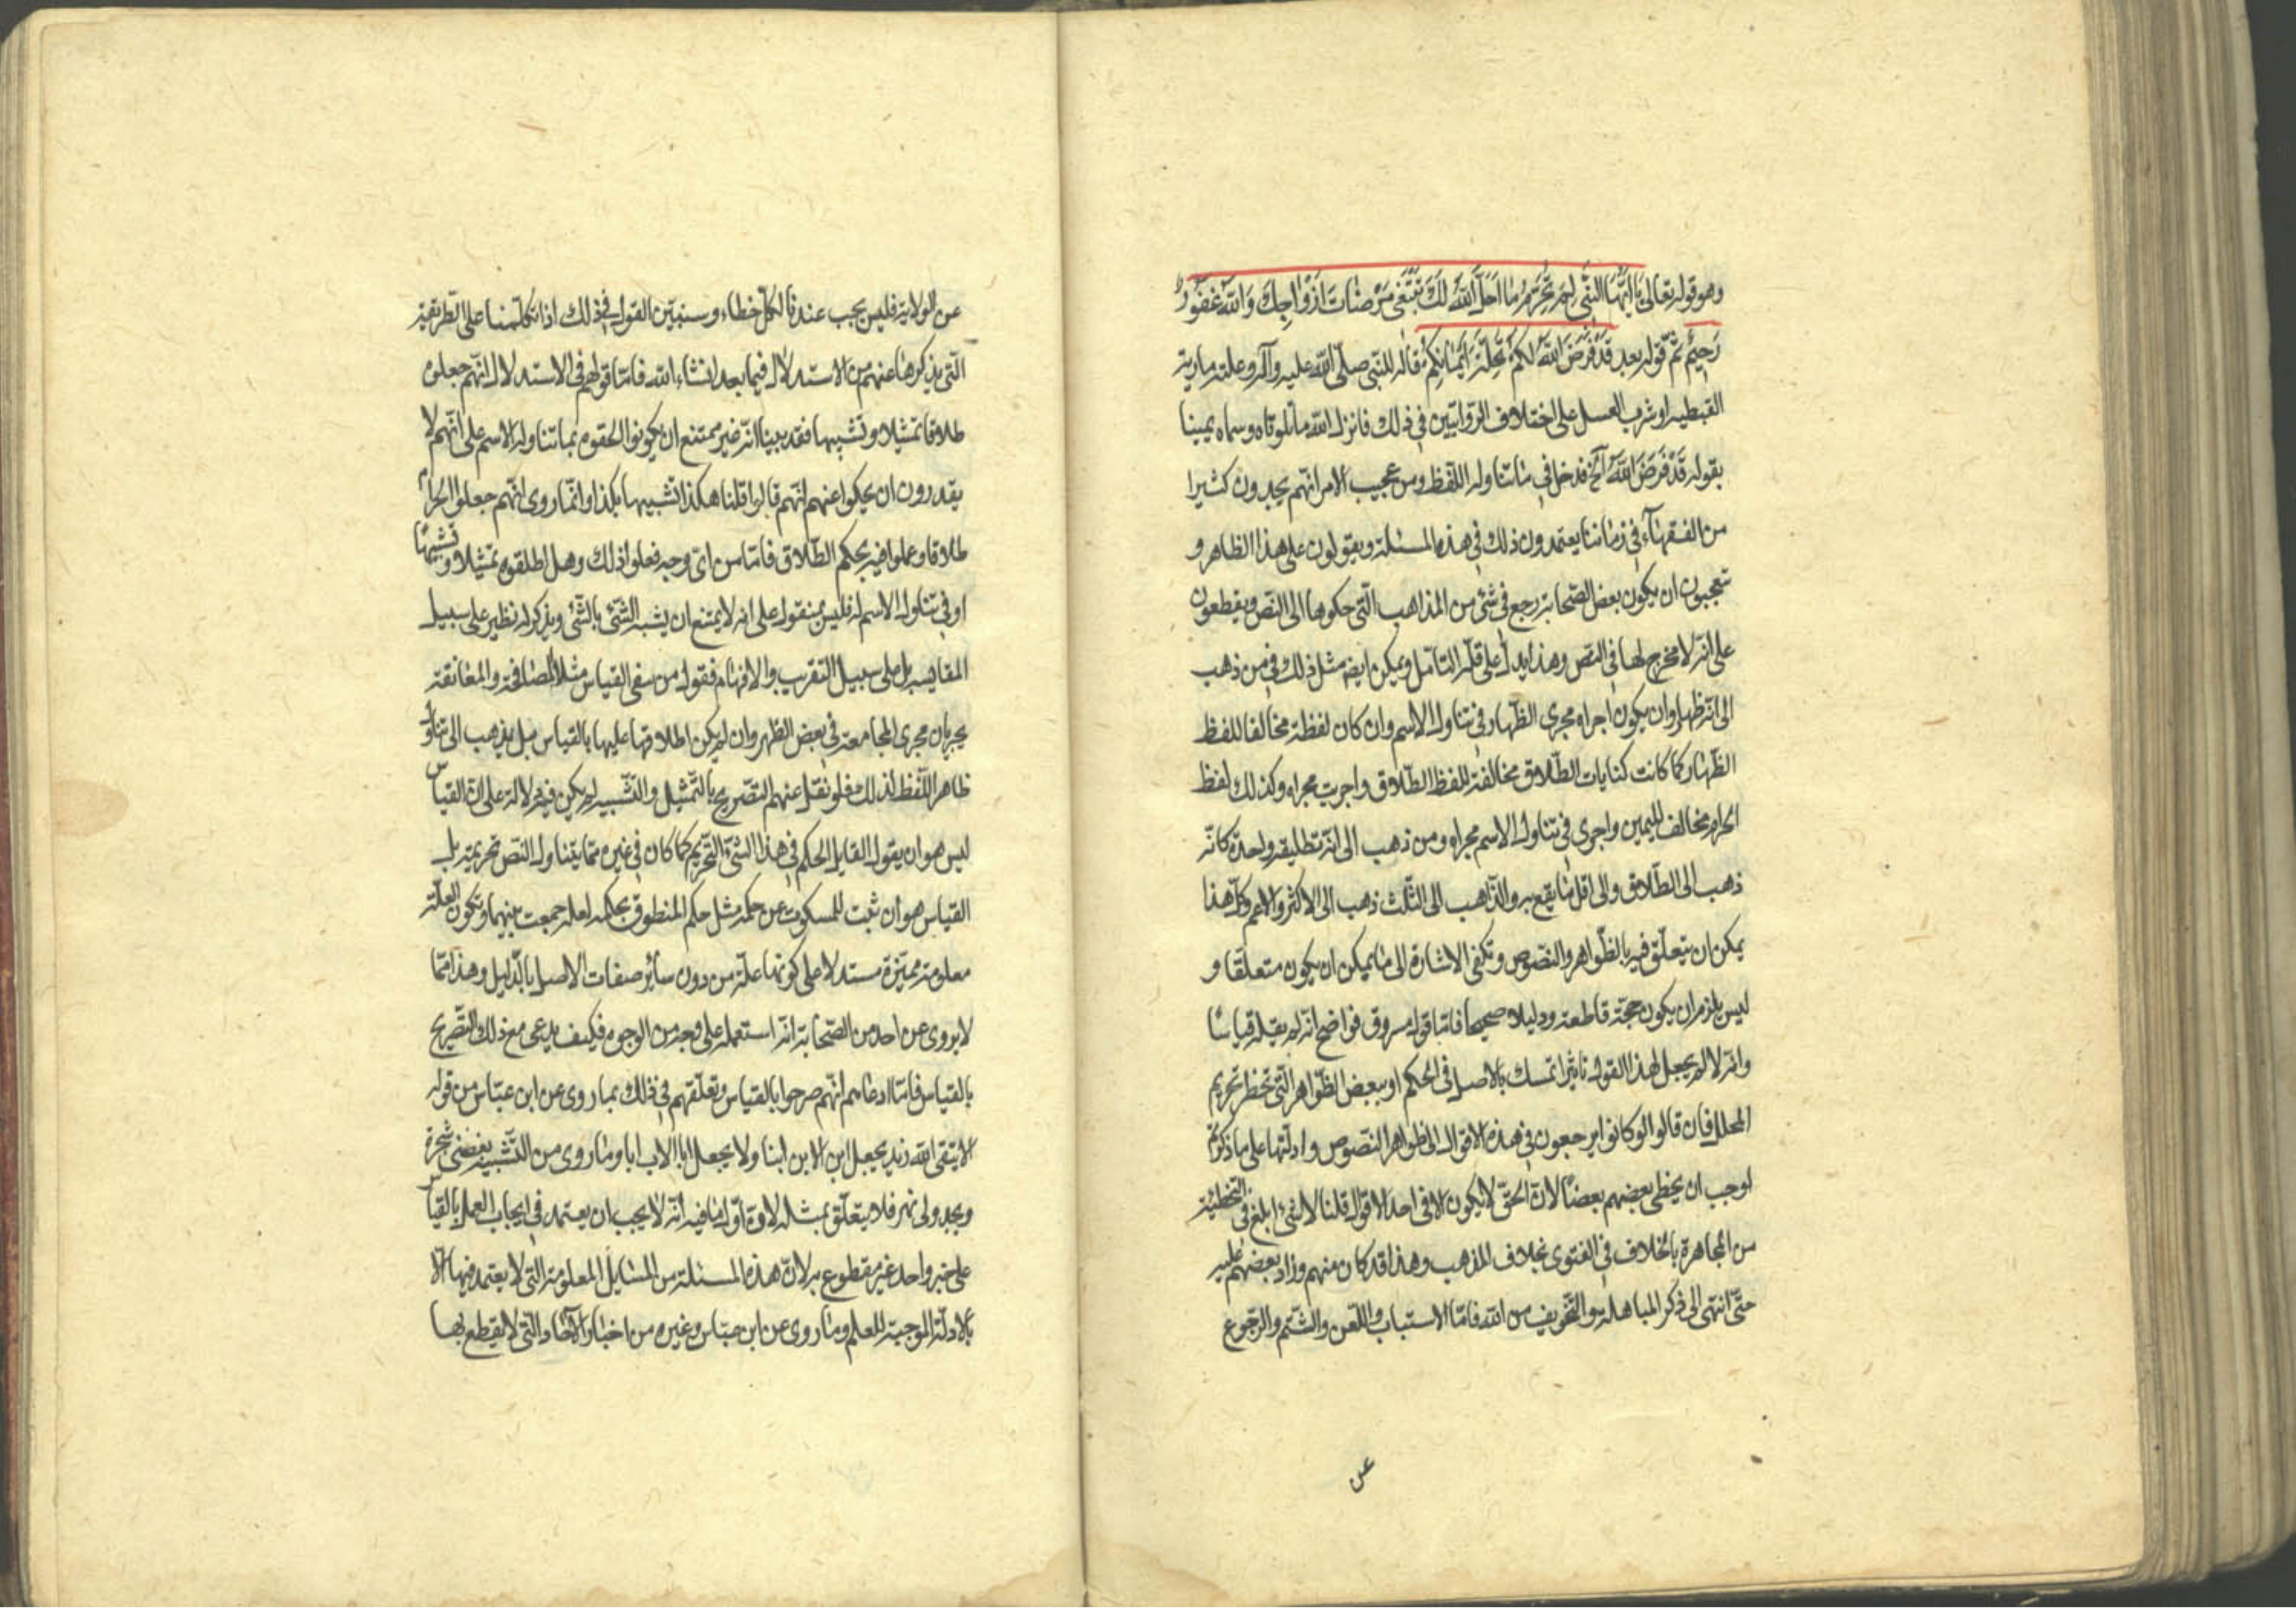 وهو قوله تعالى يَا اَيُّهَا النَّبِيُّ لِمَ تُحَرِّمُ مَا اَحَلَّ اللّٰهُ لَكَ تَبْتَغِي مَرْضَاتَ اَزْوَاجِكَ وَاللّٰهُ غَفُورٌ
رَحِيمٌ ثم قوله بعد قَدْ فَرَضَ اللّٰهُ لَكُمْ تَحِلَّةَ اَيْمَانِكُمْ قاله للنبي صلّى اللّٰه عليه وآله وعلته مارية
القبطيه او شرب العسل على اختلاف الروايتين في ذلك فانزل اللّٰه ما تلوناه وسماه يمينا
بقوله قَدْ فَرَضَ اللّٰهُ الخ فدخل في ما تناوله اللّفظ ومن عجيب الامر انهم يجدون كثيرا
من الفقهاء في زماننا يعتمدون ذلك في هذه المسئلة ويقولون على هذا الظاهر و
تعجبون ان يكون بعض الصّحابة رجع في شئ من المذاهب الّتي حكوها الى النّص ويقطعون
على انّه لا مخرج لها في النّص وهذا يدلّ على قلّة التأمّل ويمكن ايضا مثل ذلك في من ذهب
الى انّه ظهار وان يكون اجراه مجرى الظّهار في تناول الاسم وان كان لفظة مخالفا للفظ
الظّهار كما كانت كنايات الطّلاق مخالفة للفظ الطّلاق واجريت مجراه وكذلك لفظ
الحرام مخالف لليمين واجرى في تناول الاسم مجراه ومن ذهب الى انّه تطليقة واحدة كانّه
ذهب الى الطّلاق والى اقل ما يقع به والذّاهب الى الثّلث ذهب الى الاكثر والاعم وكلّ هذا
يمكن ان يتعلّق فيه بالظّواهر والنصوص وتكفي الاشارة الى ما يمكن ان يكون متعلّقا و
ليس يلزم ان يكون حجّة قاطعة ودليلا صحيحا فامّا قول مسروق فواضح انّه لم يقله قياسًا
وانّه لا لم يجعل لهذا القول تاثيرا تمسك بالاصل في الحكم او ببعض الظّواهر الّتي تحظر تحريم
المحلل فان قالوا لو كانوا يرجعون في هذه الاقوال الى ظواهر النّصوص وادلّتها على ما ذكرتم
لوجب ان يخطى بعضهم بعضا لانّ الحقّ لا يكون الا في احد الاقوال قلنا لا شئ ابلغ في التخطئة
من المجاهرة بالخلاف في الفتوى بخلاف المذهب وهذا قد كان منهم وزاد بعضهم عليه
حتّى انتهى الى ذكر المباهلة والتّخويف من اللّٰه فامّا الاستباب واللّعن والشّتم والرّجوع
عن
عن الولاية فليس يجب عندنا لكلّ خطاء وسنبيّن القول في ذلك اذا تكلّمنا على الطّريقة
الّتي يذكرها عنهم من الاستدلال فيما بعد انشاء اللّٰه فامّا قولهم في الاستدلال انّهم جعلوه
طلاقا تمثيلا وتشبيها فقد بينا انّه غير ممتنع ان يكونوا الحقوه بما تناوله الاسم على انّهم لا
يقدرون ان يحكوا عنهم انّهم قالوا قلنا هكذا تشبيها بكذا وانّما روى انّهم جعلوا الحرام
طلاقا وعملوا فيه بحكم الطّلاق فامّا من اىّ وجه فعلوا ذلك وهل اطلقوه تمثيلا وتشبيهًا
او في تناول الاسم له فليس بمنقول على انه لا يمتنع ان يشبه الشّئ بالشّئ ويذكر له نظير على سبيل
المقايسه بل على سبيل التقريب والافهام فقول من نفى القياس مثلا المصافحة والمعانقة
يجريان مجرى المجامعة في بعض الظهر وان لم يكن اطلاقها عليها بالقياس بل يذهب الى تناول
ظاهر اللّفظ لذلك فلو نقل عنهم التصريح بالتّمثيل والتّشبيه لم يكن فيه دلالة على انّ القياس
ليس هو ان يقول القايل الحكم في هذا الشّئ التّحريم كما كان في غيره ممّا يتناول النّص تحريمه بل
القياس هو ان ثبت للمسكوت عن حكمه مثل حكم المنطوق بحكمه لعلة جمعت بينهما وتكون العلّة
معلومة مميّزة مستدلا على كونها علّة من دون سائر صفات الاصل بالدّليل وهذا ممّا
لا يروى عن احد من الصّحابة انّه استعمله على وجه من الوجوه فكيف يدعى مع ذلك التّصريح
بالقياس فامّا ادعاءهم انّهم صرحوا بالقياس وتعلّقهم في ذلك بما روى عن ابن عبّاس من قوله
الا يتقى اللّٰه زيد يجعل ابن الابن ابنا ولا يجعل ابا الاب ابا وما روى من التّشبيه بغصنى شجرة
وجدولى نهر فلا يتعلّق بمثله لانّ اوّل ما فيه انّه لا يجب ان يعتمد في ايجاب العمل بالقياس
على خبر واحد غير مقطوع به لانّ هذه المسئلة من المسايل المعلومة الّتي لا يعتمد فيها الّا
بالادلّة الموجبة للعلم وما روى عن ابن عبّاس وغيره من اخبار الآحاد الّتي لا يقطع بها